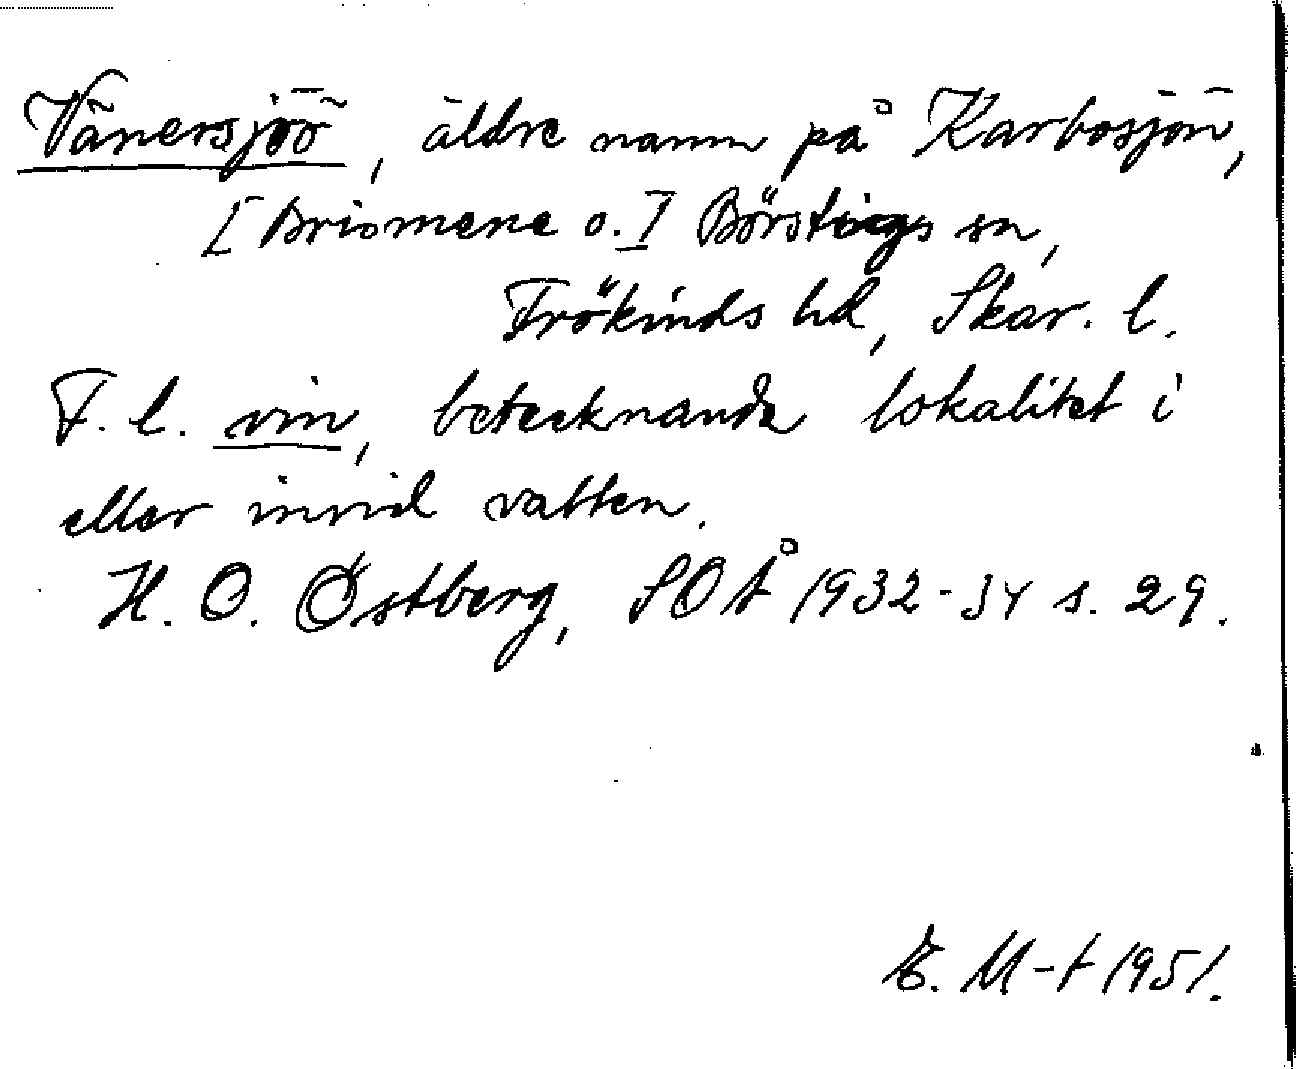 Vänersjöö, äldre namn på Karbosjön,
[Brismene o.] Börstings sn,
Frökinds hd, Skar. l.
F. l. vin, betecknande lokalitet i
eller invid vatten.
H. O. Östberg, SOÅ 1932-34 s. 29.
E. M-t 1951.